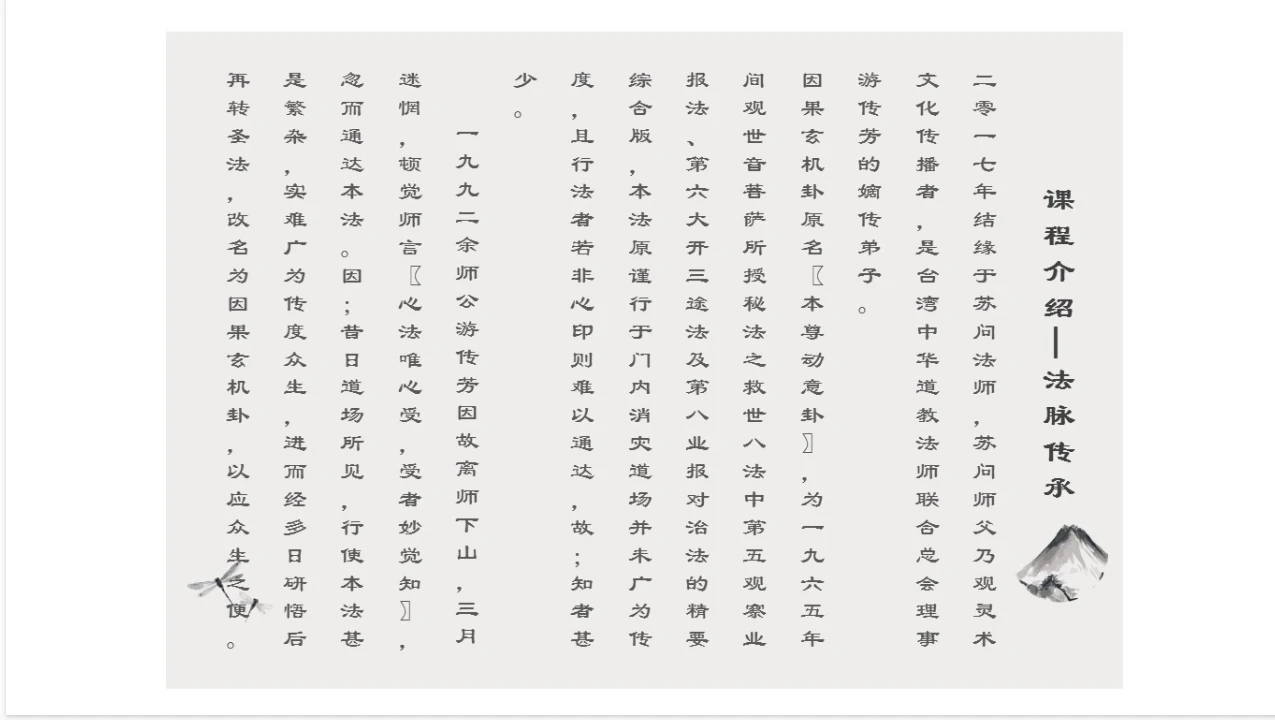 课程介绍—法脉传承
二零一七年结缘于苏问法师,苏问师父乃观灵术
文化传播者,是台湾中华道教法师联合总会理事
游传芳的嫡传弟子。
因果玄机卦原名〖本尊动意卦〗,为一九六五年
间观世音菩萨所授秘法之救世八法中第五观察业
报法、第六大开三途法及第八业报对治法的精要
综合版,本法原谨行于门内消灾道场并未广为传
度,且行法者若非心印则难以通达,故;知者甚
少。
一九九二余师公游传芳因故离师下山,三月
迷惘,顿觉师言〖心法唯心受,受者妙觉知〗,
忽而通达本法。因;昔日道场所见,行使本法甚
是繁杂,实难广为传度众生,进而经多日研悟后
再转圣法,改名为因果玄机卦,以应众生之便。